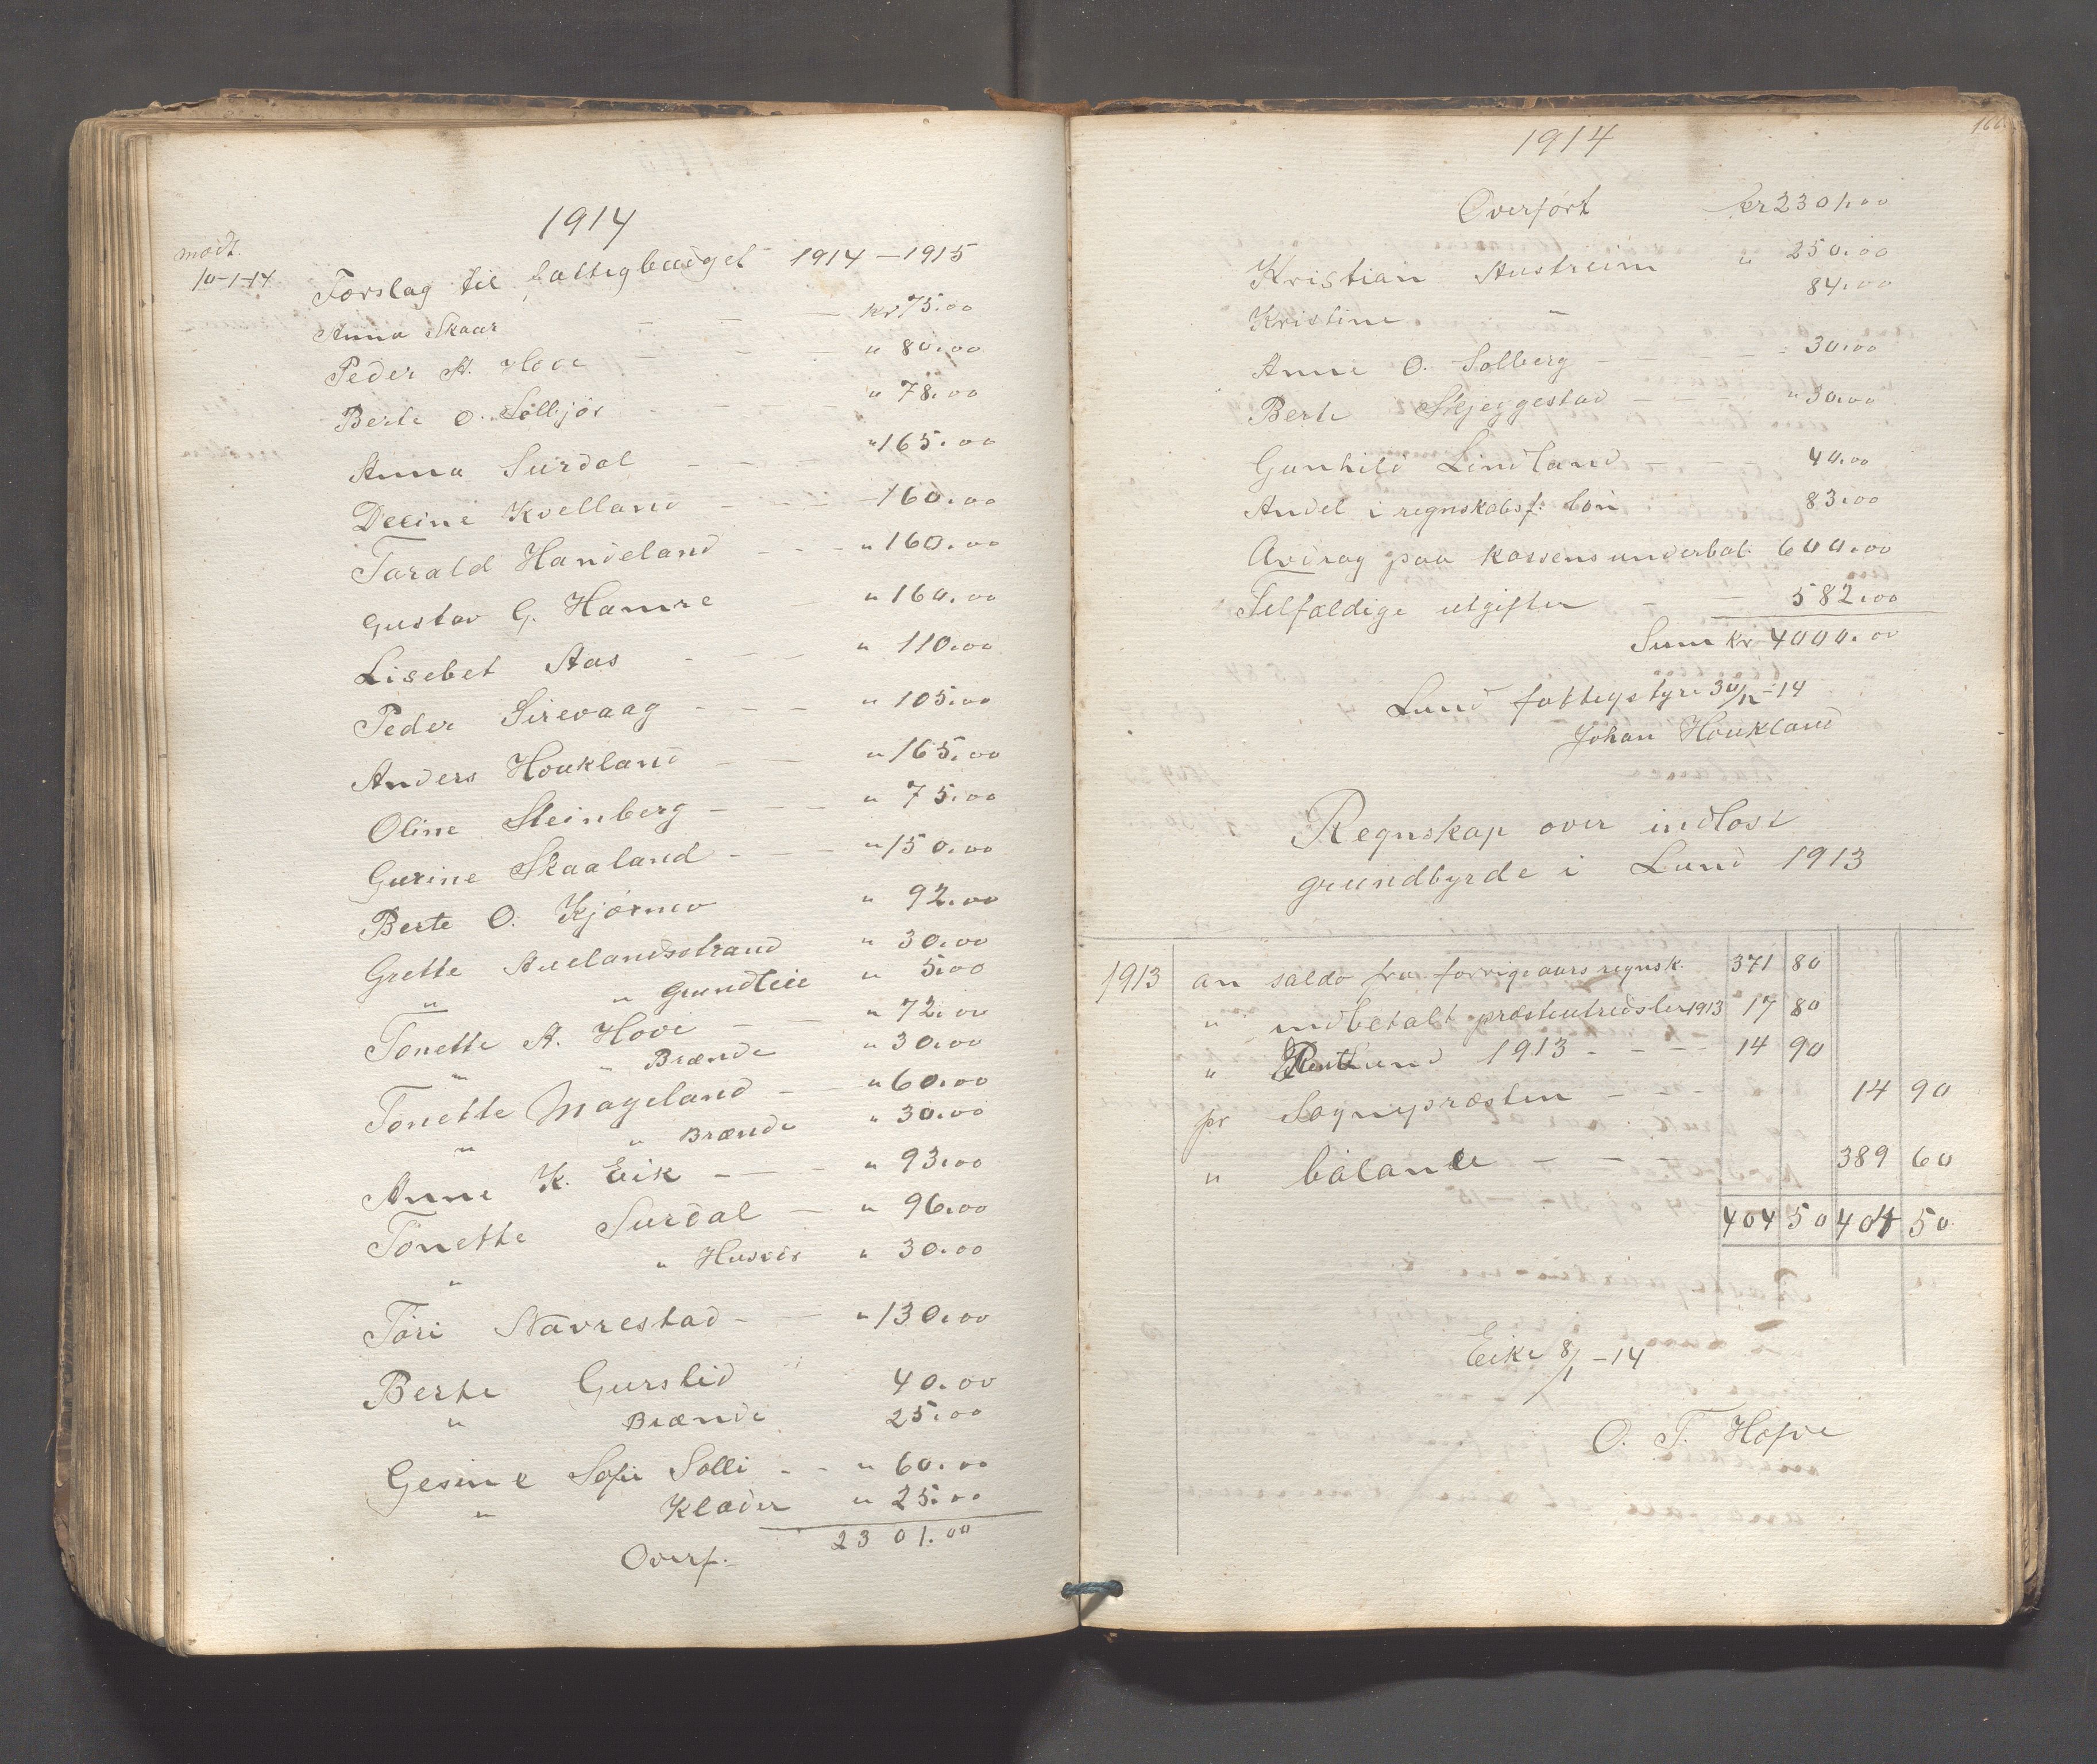 1914
mødt.
10-1-14
Forslag til fattigbudget 1914 – 1915
Anna Skaar — — — kr 75.00
Peder A. Hove — — — " 80.00
Berte O. Solbjør - - - " 78.00
Anna Surdal - - - " 165.00
Deeine Kvelland - - - - 160.00
Tarald Handeland - - - " 160.00
Gustav G. Hamre - " 160.00
Lisebet Aas - - - " 110.00
Peder Sirevaag - - - " 105.00
Anders Houkland - - " 165.00
Oline Steinberg - - - " 75.00
Gurine Skaaland - - - " 150.00
Berte O. Kjørmo " 92.00
Grette Auelandsstrand " 30.00
" " Grundleie " 5.00
Tonette A. Hove - - " 72.00
" " Brænde " 30.00
Tonette Mageland - - " 60.00
" " Brænde " 30.00
Anne K. Eik - - - " 93.00
Tonette Surdal - " 96.00
" " Husvær " 30.00
Tori Navrestad - - " 130.00
Berte Gurslid 40.00
" Brænde 25.00
Gesine Sofie Solli - - " 60.00
" Klæder " 25.00
Overf. 2301.00
166
1914
Overført kr 2301.00
Kristian Austreim " 250.00
Kristine " 84.00
Anne O. Solberg - - - - 30.00
Berte Skjeggestad - - - " 30.00
Gunhild Lindland - - - 40.00
Andel i regnskabsf: løn 83.00
Avdrag paa kassens underbal. 600.00
Tilfældige utgifter - - 582.00
Sum kr 4000.00
Lund fattigstyre 30/12 - 14
Johan Houkland
Regnskap over indløst
grundbyrde i Lund 1913
1913 an saldo fra forrige aars regnsk. 371 80
" indbetalt præsteutredsler 1913 17 80
" Rent Lund 1913 - - - - 14 90
pr Sognepræsten - - - - 14 90
" balance - - - - 389 60
404 50 404 50
Eike 8/1 - 14
O. T. Hofve